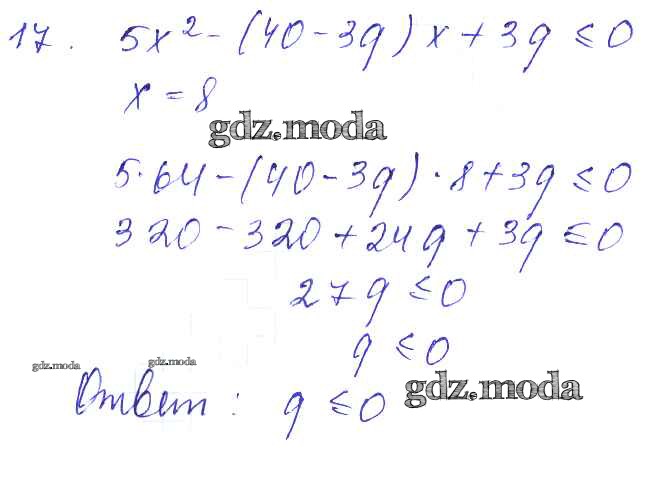 17. 5x² - (40 - 3q)x + 3q ≤ 0
x = 8
gdz.moda
5·64 - (40 - 3q)·8 + 3q ≤ 0
320 - 320 + 24q + 3q ≤ 0
27q ≤ 0
q ≤ 0
gdz.moda gdz.moda
Ответ: q ≤ 0 gdz.moda